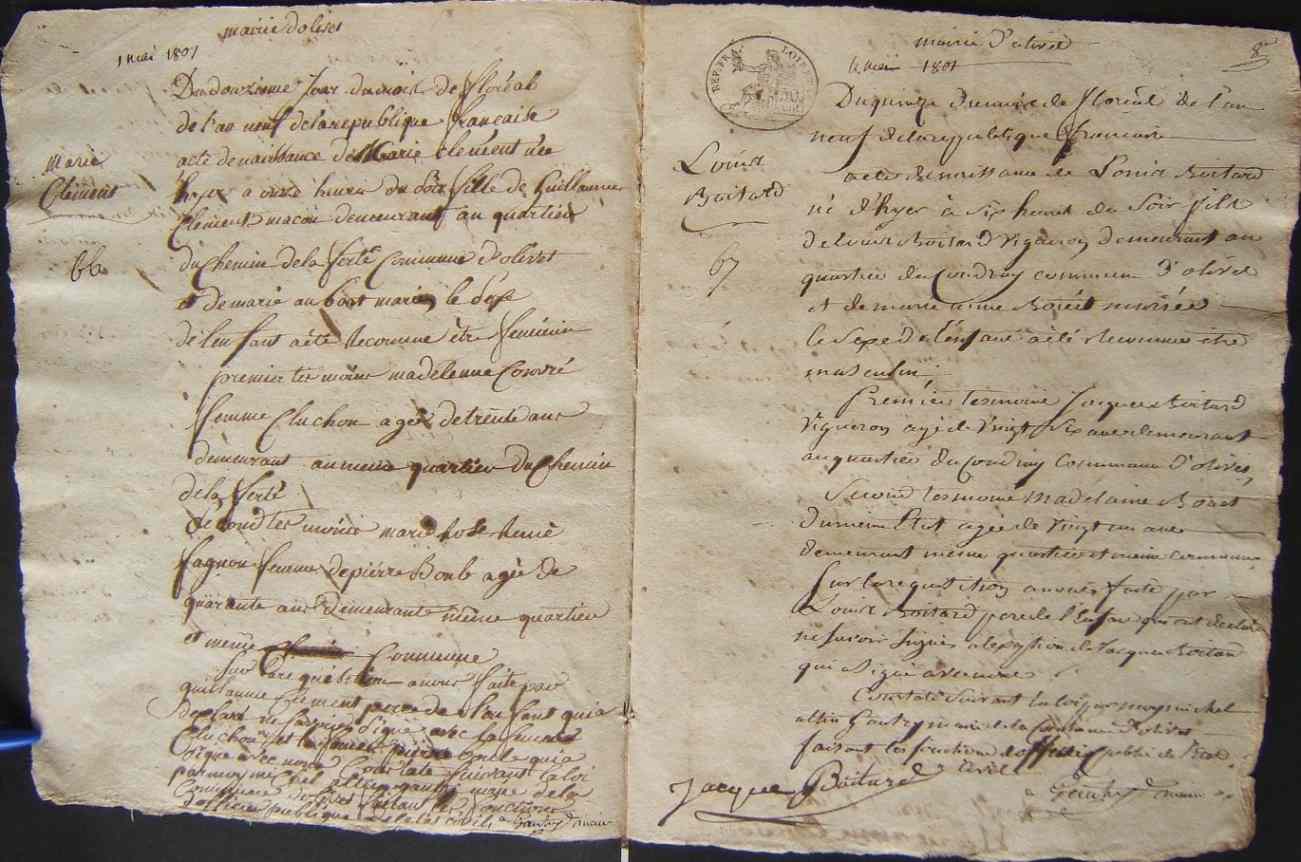 mairie d'olivet
1 mai 1801
Du douzieme Jour du mois de floréal
de l'an neuf de la republique française
acte de naissance de Marie Clement née
hyer a onze heures du soir fille de Guillaume
Clement macon demeurant au quartier
du Chemin de la ferté Commune d'olivet
et de marie
de l'enfant a été Reconnue être feminin
premier tesmoins madelenne
femme Cluchon agée de trente ans
demeurant au meme quartier du Chemin
de la ferté
Second tesmoins marie Rose
fagnou femme de pierre agée de
quarante ans demeurante même quartier
et même Commune
Sur la requisition a nous faite par
guillaume Clement pere de l'enfant qui a
declaré ne savoir Signé avec la femme
Cluchon et la femme pierre qui a
Signé avec nous Constaté Suivant la loi
par moy michel gautry maire de la
Commune d'olivet faisant les fonctions
d'officier publique de l'etat civil gautry maire
marie
Clément
66
mairie d'olivet
mai 1801
8
REP. FRA.
LOIRET
Du quinze de floréal de l'an
neuf de la republique francaise
acte de naissance de Louis Boitard
né d'hyer à Six heures du Soir fils
de Louis Boitard Vigneron demeurant au
quartier du Coudray commune d'olivet
et de marie anne mariée
le Sexe de l'enfant a été Reconnue etre
masculin
Premier tesmoins Jacques Boitard
Vigneron agé de Vingt Six ans demeurant
au quartier du Coudray Commune d'olivet,
Second tesmoins Madelaine
agée de Vingt un ans
demeurant même quartier et meme commune
Sur la requisition a nous faite par
Louis Boitard pere de l'Enfant qui ont declaré
ne Savoir Signer a l'exeption de Jacques Boitard
qui a Signé avec nous
Constaté Suivant la loi par moy michel
Gautry maire de la Commune d'olivet
faisant les fonction d'officier public de l'Etat
Civil
Jacques Boitard
Gautry maire
Louis
Boitard
67